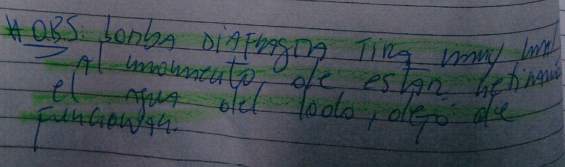 # OBS: bomba DIAFRAGMA Tira muy mal
Al momento, de estar retirando
el agua del lodo, dejó de
funcionar.